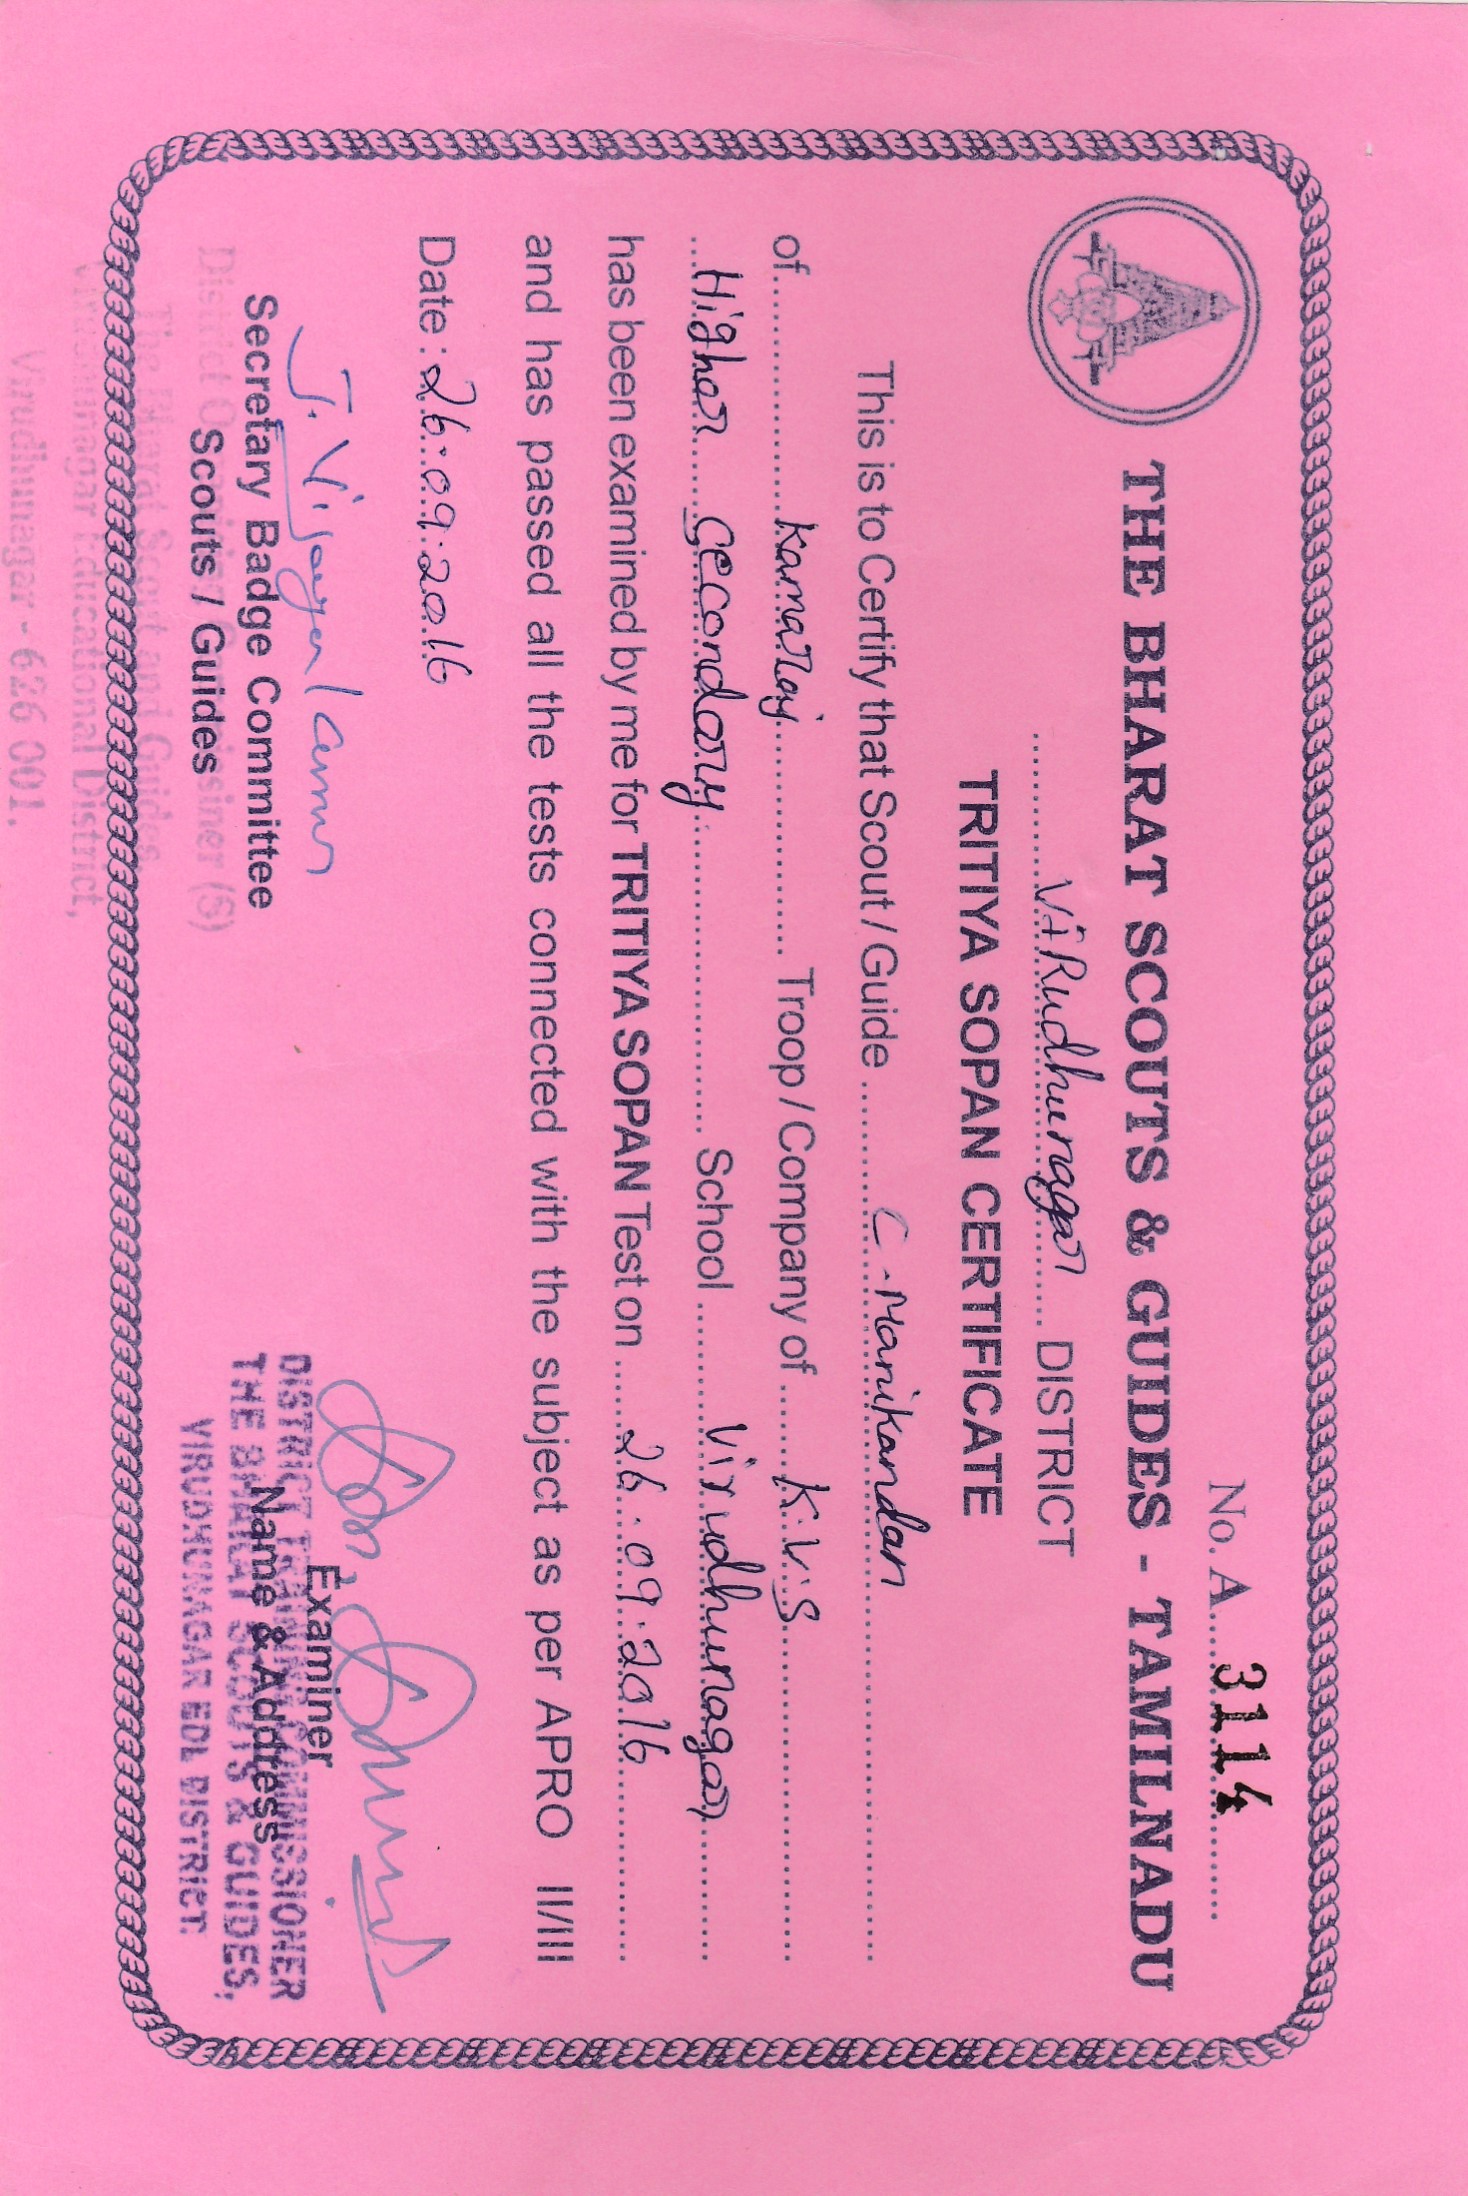 No. A 3114
THE BHARAT SCOUTS & GUIDES - TAMILNADU
ViRudhunagar DISTRICT
TRITIYA SOPAN CERTIFICATE
This is to Certify that Scout / Guide C. Manikandan
of Kamaraj Troop / Company of K.V.S
Higher Secondary School Virudhunagar
has been examined by me for TRITIYA SOPAN Test on 26.09.2016
and has passed all the tests connected with the subject as per APRO II/III
Date : 26.09.2016
Secretary Badge Committee
Scouts / Guides
District Organising Commissioner (S)
The Bharat Scout and Guides
Virudhunagar Educational District,
Virudhunagar - 626 001.
Examiner
Name & Address
DISTRICT TRAINING COMMISSIONER
THE BHARAT SCOUTS & GUIDES,
VIRUDHUNAGAR EDL DISTRICT.